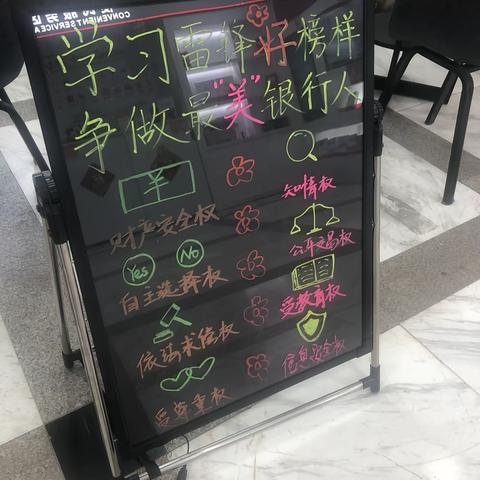 CONVENIENT SERVICE A
学习雷锋好榜样
争做最"美"银行人
财产安全权
知情权
Yes No
公平交易权
自主选择权
受教育权
依法求偿权
信息安全权
受尊重权